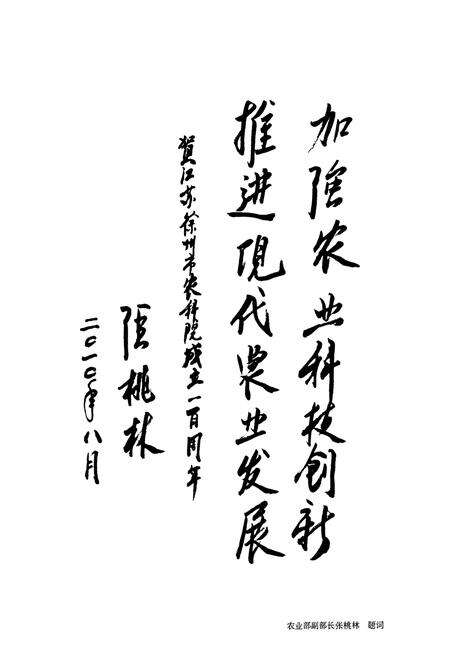 加强农业科技创新
推进现代农业发展
贺江苏徐州市农科院成立一百周年
张桃林
二〇一〇年八月
农业部副部长张桃林 题词